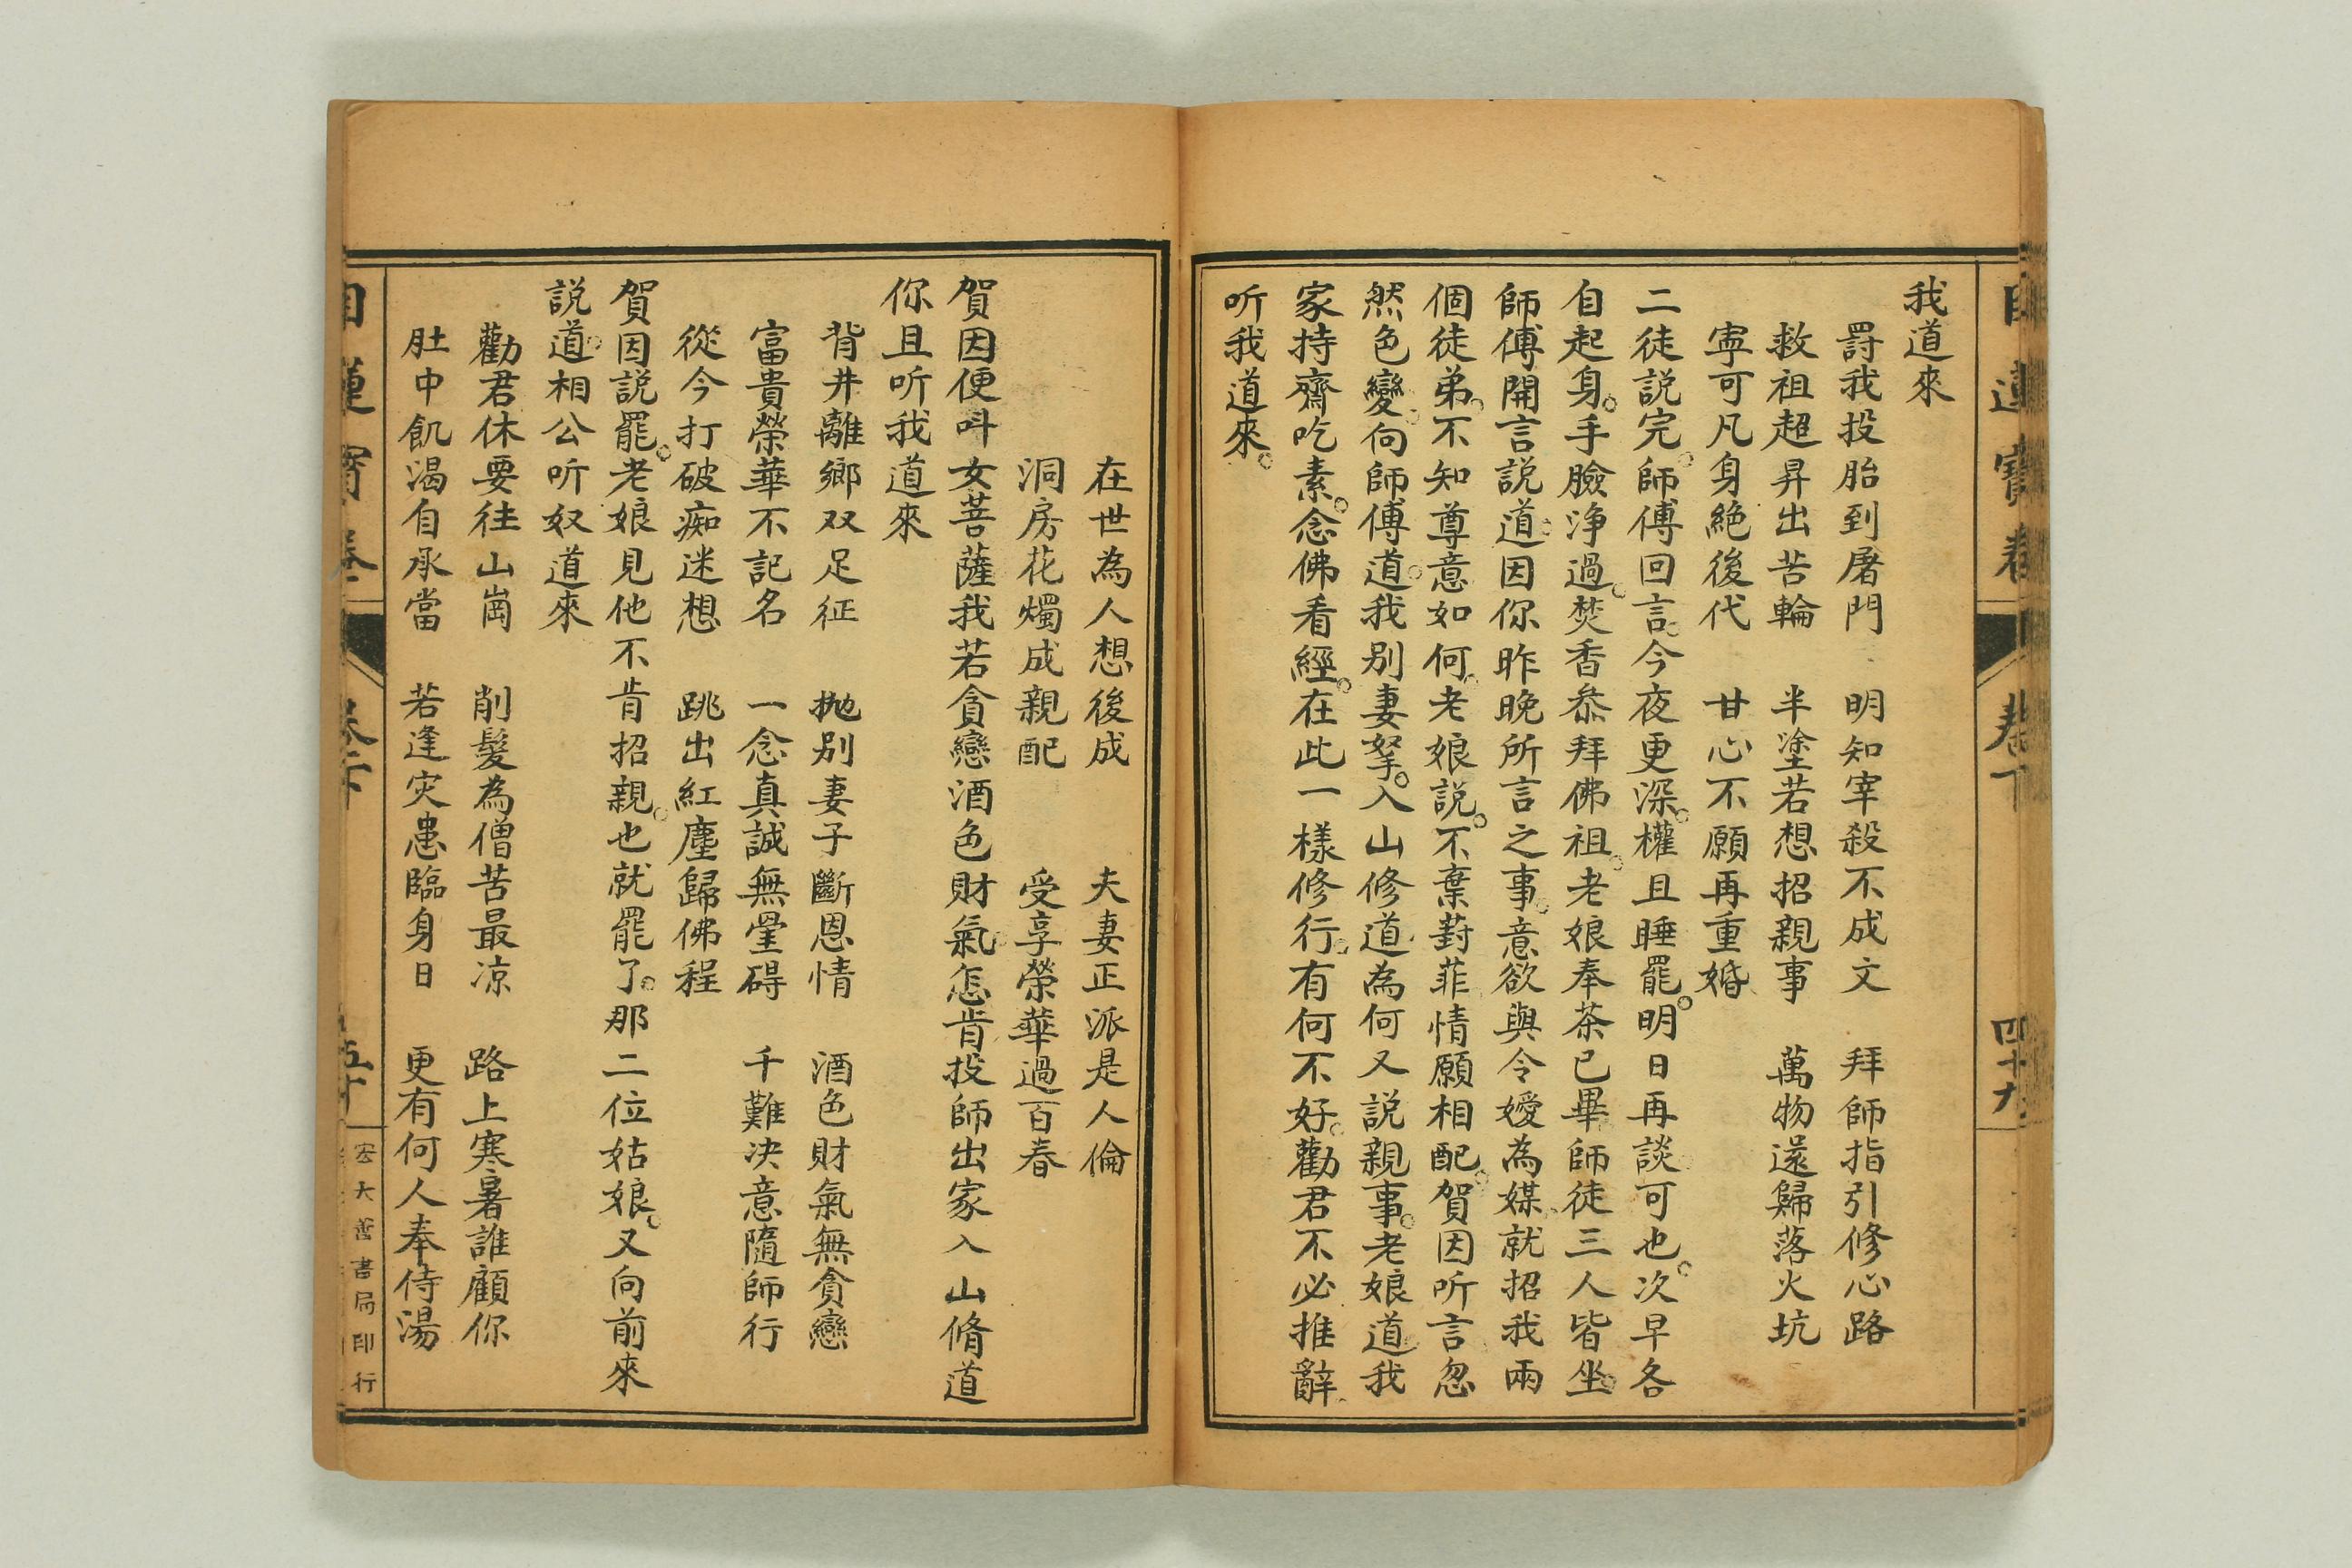 目蓮寶卷 卷下 四十九
我道來
罸我投胎到屠門 明知宰殺不成文 拜師指引修心路
救祖超昇出苦輪 半塗若想招親事 萬物還歸落火坑
寧可凡身絕後代 甘心不願再重婚
二徒説完。師傅回言。今夜更深。權且睡罷。明日再談可也。次早各
自起身。手臉净過。焚香叅拜佛祖。老娘奉茶已畢師徒三人皆坐。
師傅開言説道。因你昨晚所言之事。意欲與令嫒為媒。就招我兩
個徒弟。不知尊意如何。老娘説。不棄葑菲情願相配。賀因听言忽
然色變。向師傅道。我别妻孥。入山修道。為何又説親事。老娘道。我
家持齋吃素。念佛看經。在此一樣修行。有何不好。勸君不必推辭。
听我道來。
在世為人想後成 夫妻正派是人倫
洞房花燭成親配 受享榮華過百春
賀因便呌女菩薩我若貪戀酒色財氣。怎肯投師出家入山脩道
你且听我道來
背井離鄉双足征 抛别妻子斷恩情 酒色財氣無貪戀
富貴榮華不記名 一念真誠無罣碍 千難决意隨師行
從今打破痴迷想 跳出紅塵歸佛程
賀因説罷。老娘見他不肯招親。也就罷了。那二位姑娘。又向前來
説道。相公听奴道來
勸君休要往山崗 削髮為僧苦最凉 路上寒暑誰顧你
肚中飢渴自承當 若逢灾患臨身日 更有何人奉侍湯
目蓮寶卷 卷下 五十 宏大善書局印行